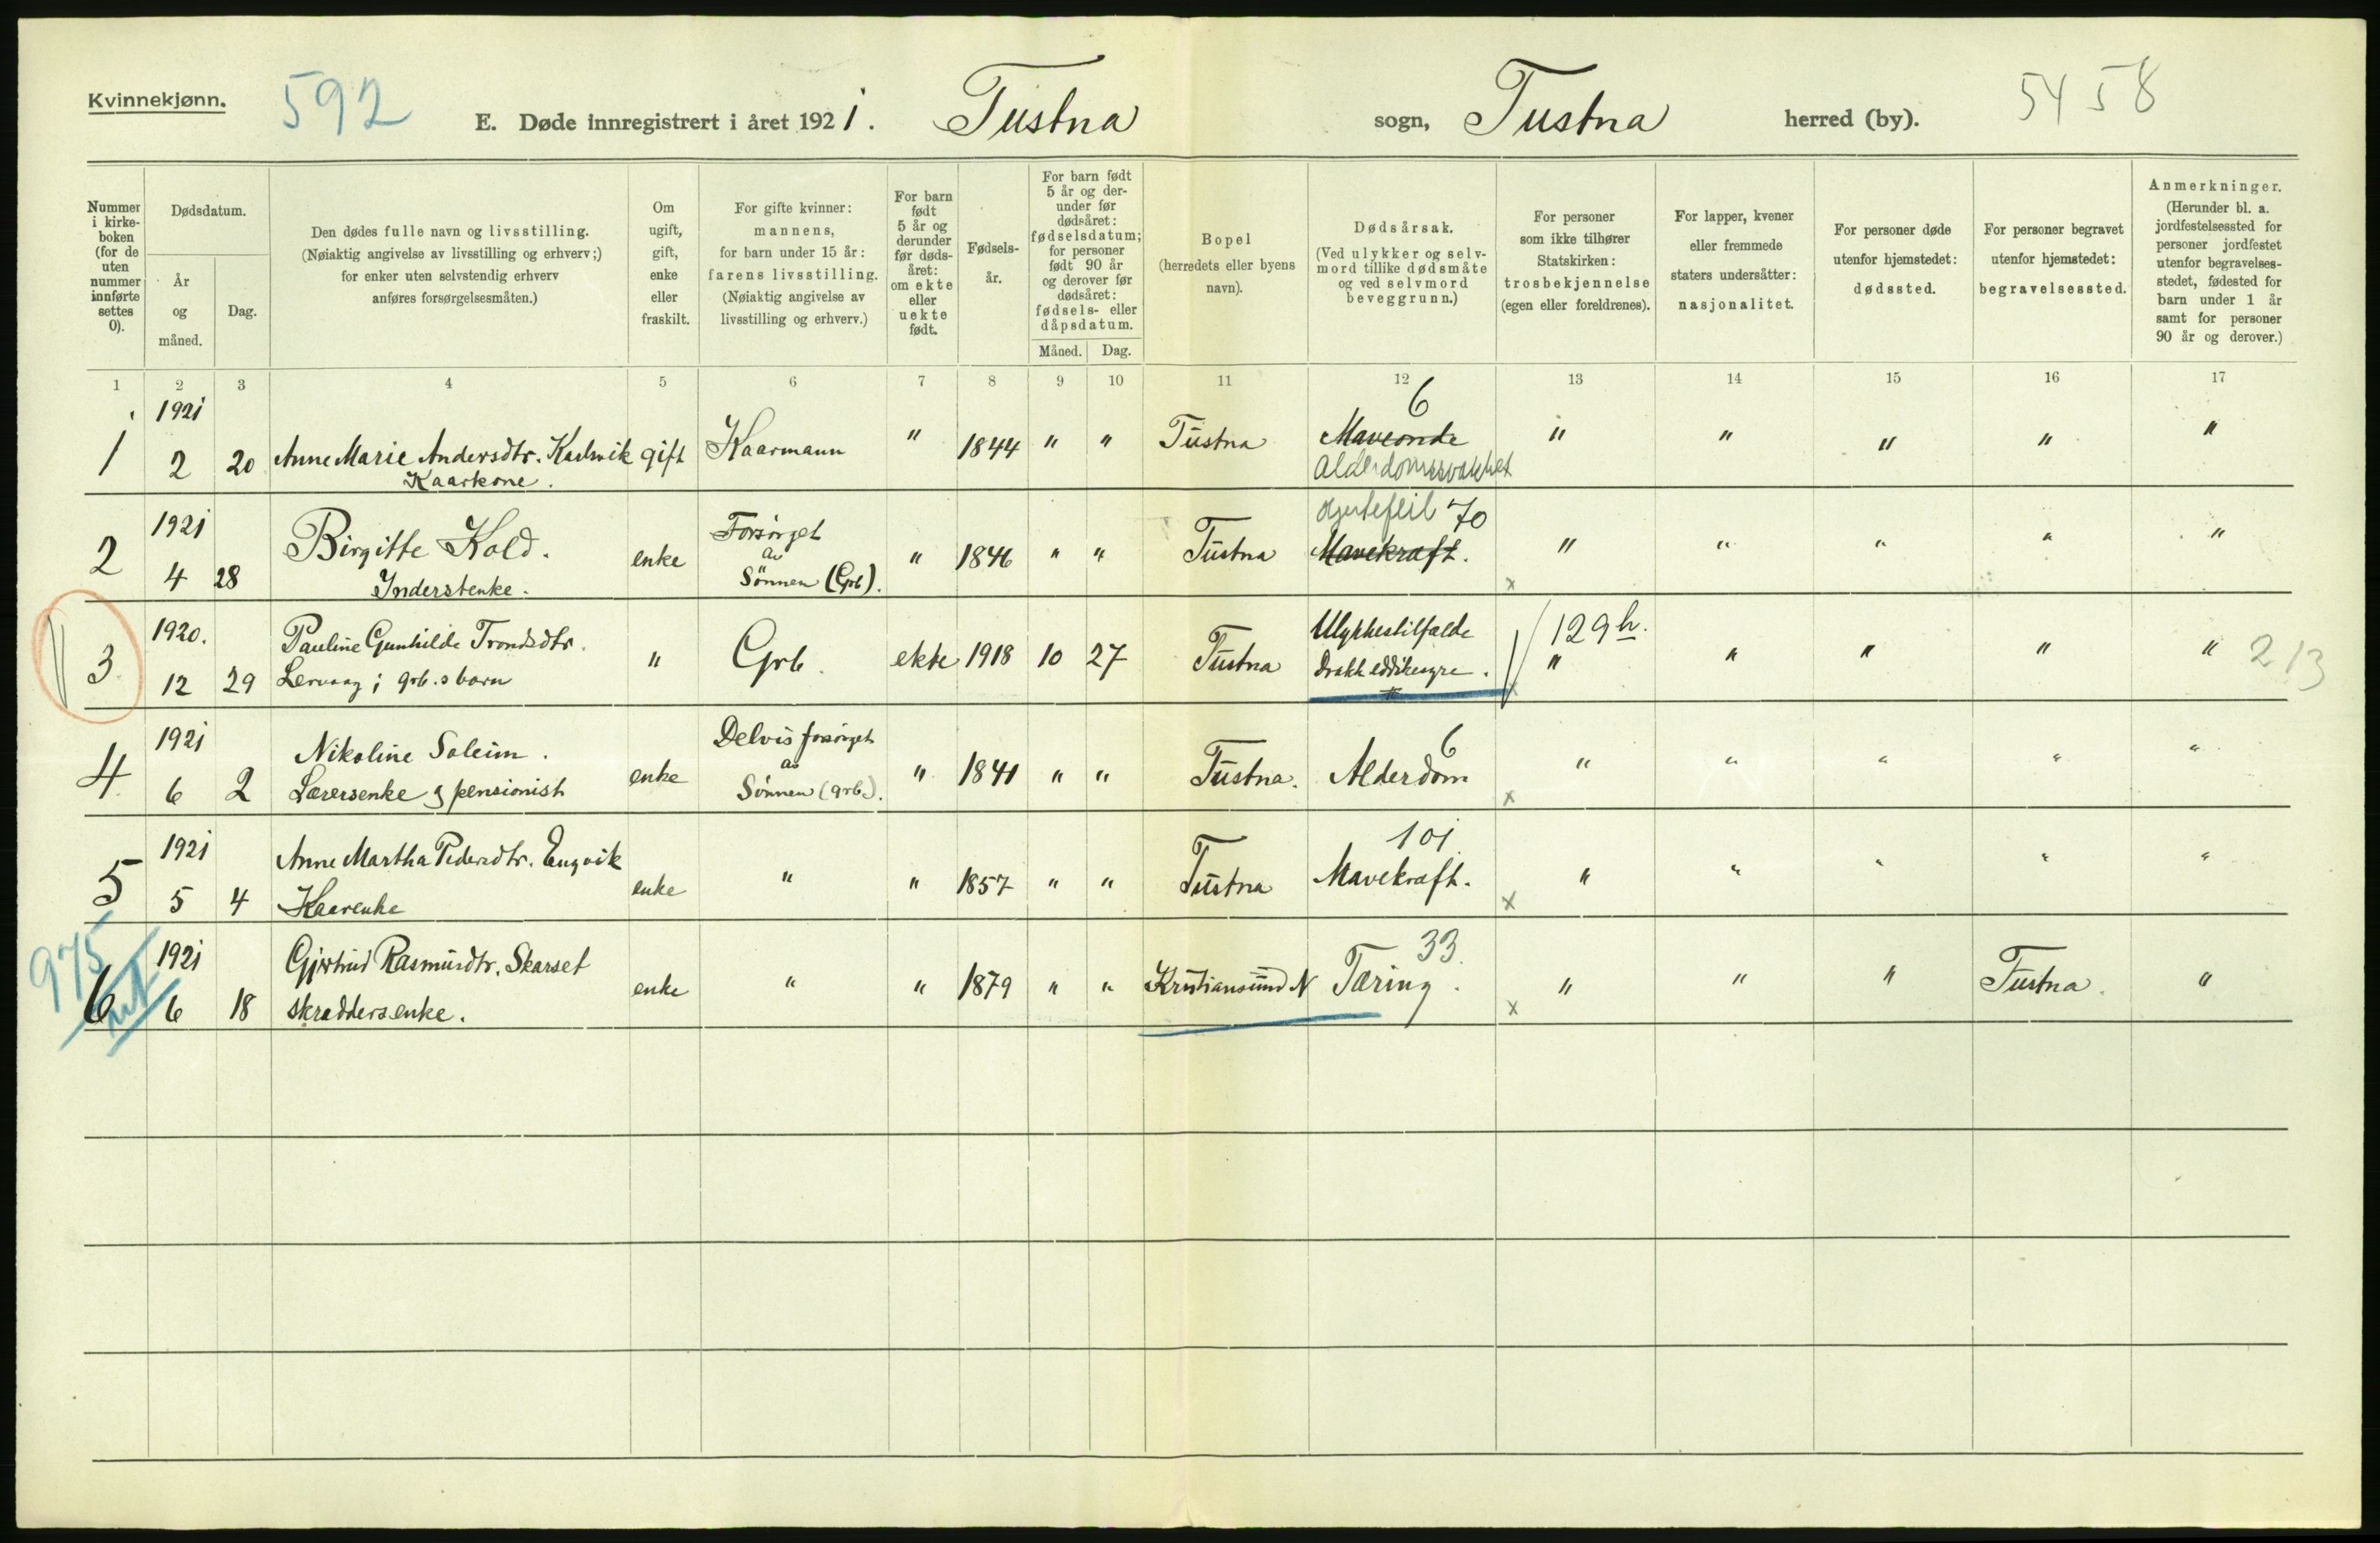 Kvinnekjønn.
592
E. Døde innregistrert i året 1921. Tustna sogn, Tustna herred (by).
5458
Nummer i kirke-boken (for de uten nummer innførte settes 0).
Dødsdatum.
År og måned.
Dag.
Den dødes fulle navn og livsstilling.
(Nøiaktig angivelse av livsstilling og erhverv;)
for enker uten selvstendig erhverv
anføres forsørgelsesmåten.)
Om ugift, gift, enke eller fraskilt.
For gifte kvinner: mannens, for barn under 15 år: farens livsstilling. (Nøiaktig angivelse av livsstilling og erhverv.)
For barn født 5 år og derunder før døds-året: om ekte eller uekte født.
Fødsels-år.
For barn født 5 år og der-under før dødsåret: fødselsdatum; for personer født 90 år og derover før dødsåret: fødsels- eller dåpsdatum.
Måned. Dag.
Bopel (herredets eller byens navn).
Dødsårsak. (Ved ulykker og selv-mord tillike dødsmåte og ved selvmord beveggrunn.)
For personer som ikke tilhører Statskirken: trosbekjennelse (egen eller foreldrenes).
For lapper, kvener eller fremmede staters undersåtter: nasjonalitet.
For personer døde utenfor hjemstedet: dødssted.
For personer begravet utenfor hjemstedet: begravelsessted.
Anmerkninger. (Herunder bl. a. jordfestelsessted for personer jordfestet utenfor begravelses-stedet, fødested for barn under 1 år samt for personer 90 år og derover.)
1 2 3 4 5 6 7 8 9 10 11 12 13 14 15 16 17
1921 6
1 2 20 Anne Marie Andersdtr. Karlsvik gift Kaarmann " 1844 " " Tustna Maveonde " " " " "
Kaarkone. Alderdomssvakhet
1921 Forsørget Hjertefeil 70
2 4 28 Birgitte Kold. enke av " 1846 " " Tustna Mavekraft. " " " " "
Inderstenke. Sønnen (Grb). x
1920. Pauline Gunhilde Trondsdtr. Ulykkestilfælde 129 h.
3 12 29 Lervaag; grb.s barn " Grb. ekte 1918 10 27 Tustna Drakk eddikesyre. " " " " " 213
1921 Nikoline Soleim. Delvis forsørget 6
4 6 2 Lærersenke & pensionist enke av Sønnen (grb.). " 1841 " " Tustna. Alderdom x " " " " "
1921 Anne Martha Pedersdtr. Engvik 101
5 5 4 Kaarenke enke " " 1857 " " Tustna Mavekraft. x " " " " "
975 1921 Gjertrud Rasmusdtr. Skarset 33.
6 6 18 skreddersenke. enke " " 1879 " " Kristiansund N Tæring. x " " " Tustna. "